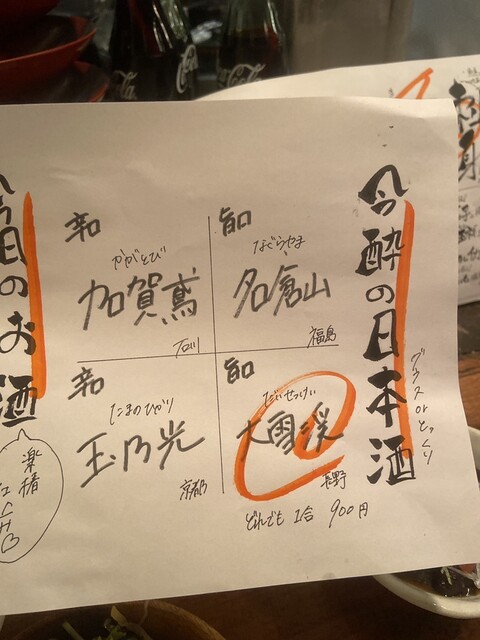 今酔の日本酒
グラス or とっくり
旨口
なぐらやま
名倉山
福島
旨口
だいせっけい
大雪渓
長野
辛口
かがとび
加賀鳶
石川
辛口
たまのひかり
玉乃光
京都
どれでも 1合 900円
今日のお酒